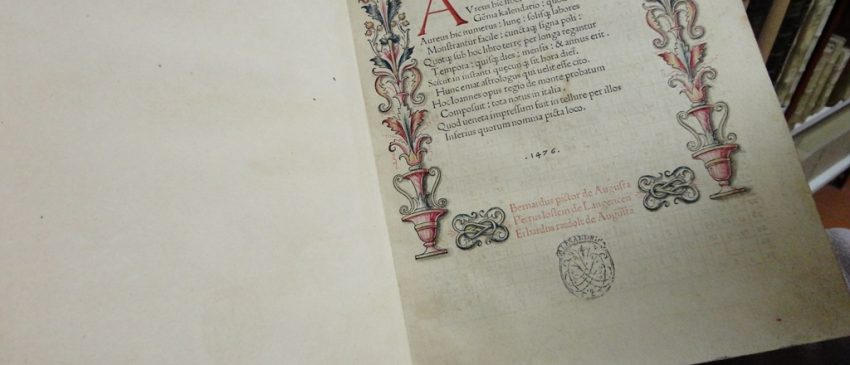 AVreus hic
Gēma kalendario:
Aureus hic numerus: lunę: solisq; labores
Monstrantur facile: cunctaq; signa poli:
Quotq; sub hoc libro terrę per longa regantur
Tempora: quisq; dies: mensis: & annus erit.
Scitur in instanti quęcunq; sit hora diei.
Hunc emat astrologus qui velit esse cito.
Hoc Ioannes opus regio de monte probatum
Composuit: tota notus in italia.
Quod veneta impressum fuit in tellure per illos
Inferius quorum nomina picta loco.
.1476.
Bernardus pictor de Augusta
Petrus loslein de Langencen
Erhardus ratdolt de Augusta